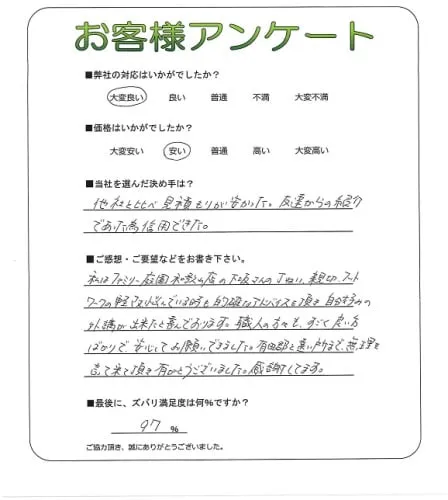 お客様アンケート
■弊社の対応はいかがでしたか？
大変良い 良い 普通 不満 大変不満
■価格はいかがでしたか？
大変安い 安い 普通 高い 大変高い
■当社を選んだ決め手は？
他社と比べ見積もりが安かった。友達からの紹介
であった為信用できた。
■ご感想・ご要望などをお書き下さい。
私はファミリー庭園和歌山店の下坂さんの丁ねい、親切、フット
ワークの軽さ 時も的確なアドバイスを頂き自分好みの
外構が出来たと喜んでおります。職人の方々も、すごく良い方
ばかりで安心してお願いできました。有田郡と遠い所まで、無理を
言って来て頂き有がとうございました。感謝してます。
■最後に、ズバリ満足度は何%ですか？
97 %
ご協力頂き、誠にありがとうございました。